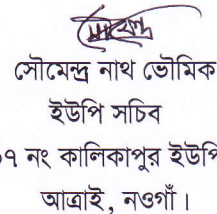 সৌমেন্দ্র নাথ ভৌমিক
ইউপি সচিব
০৭ নং কালিকাপুর ইউপি
আত্রাই, নওগাঁ।